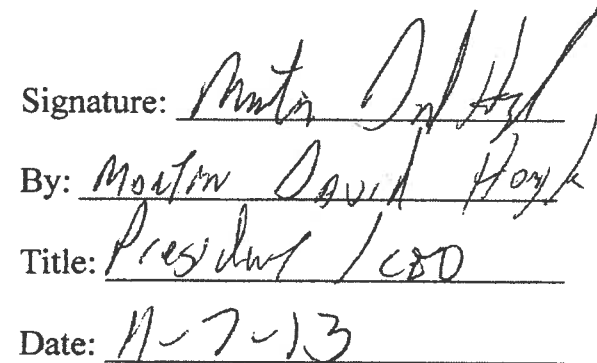 Signature: Martin David Hoyle
By: Martin David Hoyle
Title: President / CEO
Date: 11-7-13